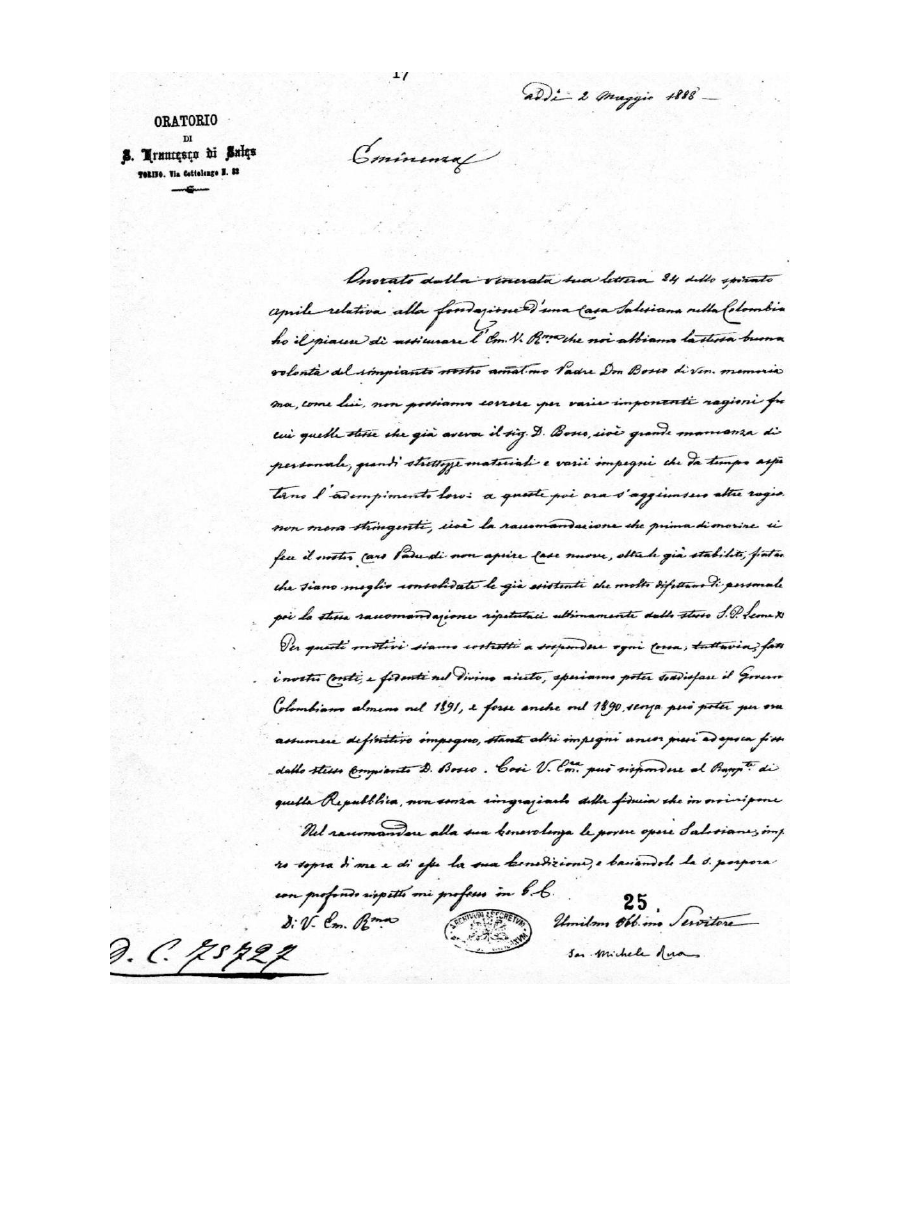 17
addì 2 Maggio 1888
ORATORIO
DI
S. Francesco di Sales
TORINO. Via Cottolengo N. 32
Eminenza
Onorato dalla venerata sua lettera 24 dello spirato
aprile relativa alla fondazione d'una Casa Salesiana nella Colombia
ho il piacere di assicurare l'Em. V. Rma che noi abbiamo la stessa buona
volontà del rimpianto nostro amat.mo Padre Don Bosco di ven. memoria
ma, come lui, non possiamo correre per varie imponenti ragioni fra
cui quelle stesse che già aveva il sig. D. Bosco, cioè grande mancanza di
personale, grandi strettezze materiali e varii impegni che da tempo aspet
tano l'adempimento loro: a queste poi ora s'aggiunsero altre ragio
non meno stringenti, cioè la raccomandazione che prima di morire ci
fece il nostro caro Padre di non aprire case nuove, oltre le già stabilite,
che siano meglio consolidate le già esistenti che molto difettano di personale
poi la stessa raccomandazione ripetutaci ultimamente dallo stesso S. P. Leone XI
Per questi motivi siamo costretti a sospendere ogni cosa, tuttavia, fatti
i nostri conti, e fidenti nel divino aiuto, speriamo poter soddisfare il Govern
Colombiano almeno nel 1891, e forse anche nel 1890, senza però poter per ora
assumere definitivo impegno, stante altri impegni ancor presi ad epoca fiss
dallo stesso compianto D. Bosco. Così V. Em. può rispondere al Rapp.te di
quella Repubblica, non senza ringraziarlo della fiducia che in noi ripone
Nel raccomandare alla sua benevolenza le povere opere Salesiane, imp
ro sopra di me e di esse la sua benedizione, e baciandole la s. porpora
con profondo rispetto mi professo in G. C.
25
Di V. Em. Rma
Umilmo Obb.mo Servitore
Sac. Michele Rua
ARCHIVUM SECRETUM
D. C. 75727